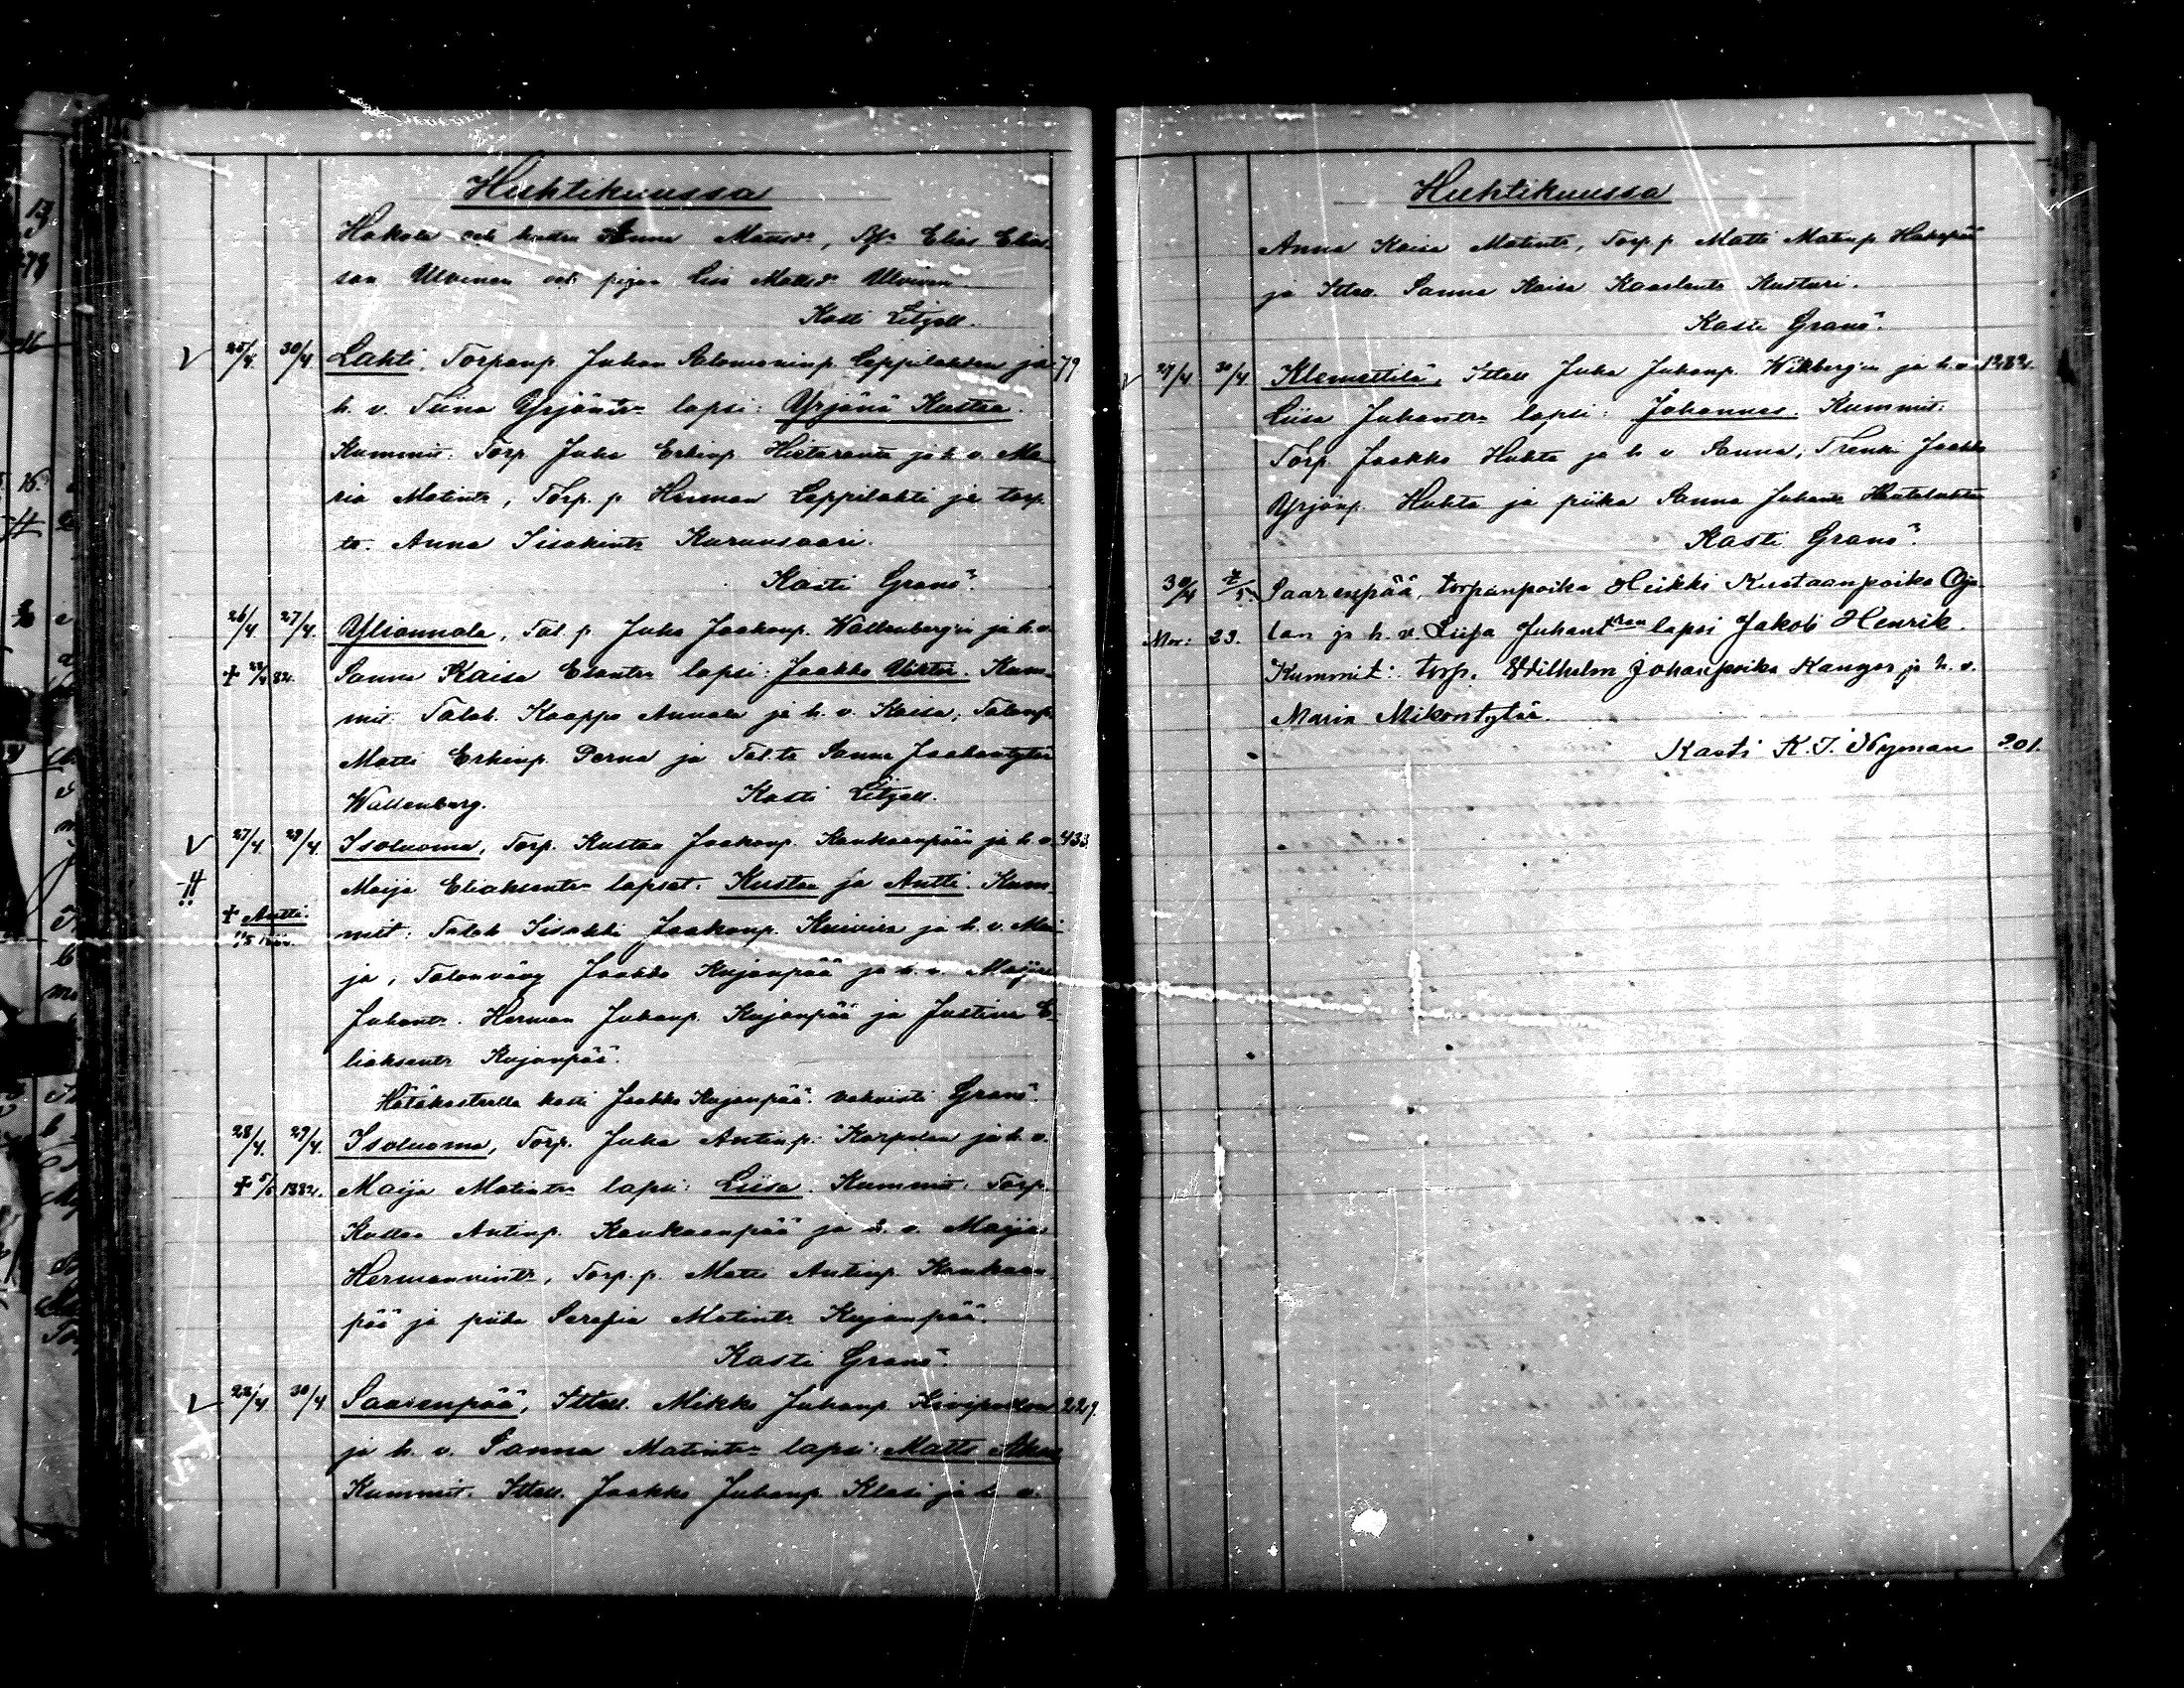 Huhtikuussa
Hakola och hustru Anna Mattsdr, Elias Elias-
son Ulvinen och pigan Lisa Mattsdr Ulvinen
Kasti Litzell.
25/4. 30/4 Lahti, Torpanp. Juhan Salomoninp. Leppilahden ja 79
h. v. Tiina Yrjöntr lapsi: Yrjänä Kustaa.
Kummit: Torp. Juha Erkinp. Hietaranta ja h. v. Ma-
ria Matintr, Torp. p. Herman Leppilahti ja torp.
tr. Anna Iisakintr Kurunsaari.
Kasti Granö.
26/4 27/4. Yliannala, Tal. p. Juha Jaakonp. Wallenberg'in ja h. v.
Sanna Kaisa Esantr lapsi: Jaakko Viktor. Kum-
mit: Talol. Kaappo Annala ja h. v. Kaisa, Talonp.
Matti Erkinp. Perna ja Tal. tr Sanna Jaakontytär
Wallenberg. Kasti Litzell.
27/4. 29/4. Isoluoma, Torp. Kustaa Jaakonp. Kankaanpään ja h. v. 433.
Maija Eliaksentr lapset: Kustaa ja Antti. Kum-
+ Antti.
mit: Talol. Iisakki Jaakonp. Knivira ja h. v. Mai-
ja, Talonvävy Jaakko Kujanpää ja h. v. Maija
Juhantr. Herman Juhanp. Kujanpää ja Justina E-
liaksentr Kujanpää.
Hätäkasteella kasti Jaakko Kujanpää. vahvisti Granö.
28/4. 29/4. Isoluoma, Torp. Juha Antinp. Karpelan ja h. v.
+ 5/5 1882. Maija Matintr lapsi: Liisa. Kummit: Torp.
Kustaa Antinp. Kankaanpää ja h. v. Maija
Hermannintr, Torp. p. Matti Antinp. Kankaan-
pää ja piika Serafia Matintr Kujanpää.
Kasti Granö.
28/4 30/4 Saarenpää, Ittell. Mikko Juhanp. 229.
ja h. v. Sanna Matintr lapsi: Matts
Kummit: Ittell. Jaakko Juhanp. Klasi ja h. v.
Huhtikuussa
Anna Kaisa Matintr, Torp. p. Matti Matinp. Hakapää
ja Ittell. Sanna Kaisa Kaarlentr Kusturi.
Kasti Granö.
29/4 30/4 Klemettilä, Ittell Juha Juhanp. Wikberg'in ja h. v. 1282.
Liisa Juhantr lapsi: Johannes. Kummit:
Torp. Jaakko Huhta ja h. v. Sanna, Trenki Jaakko
Yrjönp. Huhta ja piika Sanna Juhantr
Kasti Granö.
30/4 7/5. Saarenpää, torpanpoika Heikki Kustaanpoika Oja-
Mor: 23. lan ja h. v. Liisa Juhant:ren lapsi Jakob Henrik.
Kummit: torp. Wilhelm Johanpoika Kangas ja h. v.
Maria Mikontytär.
Kasti K. J. Nyman 201.